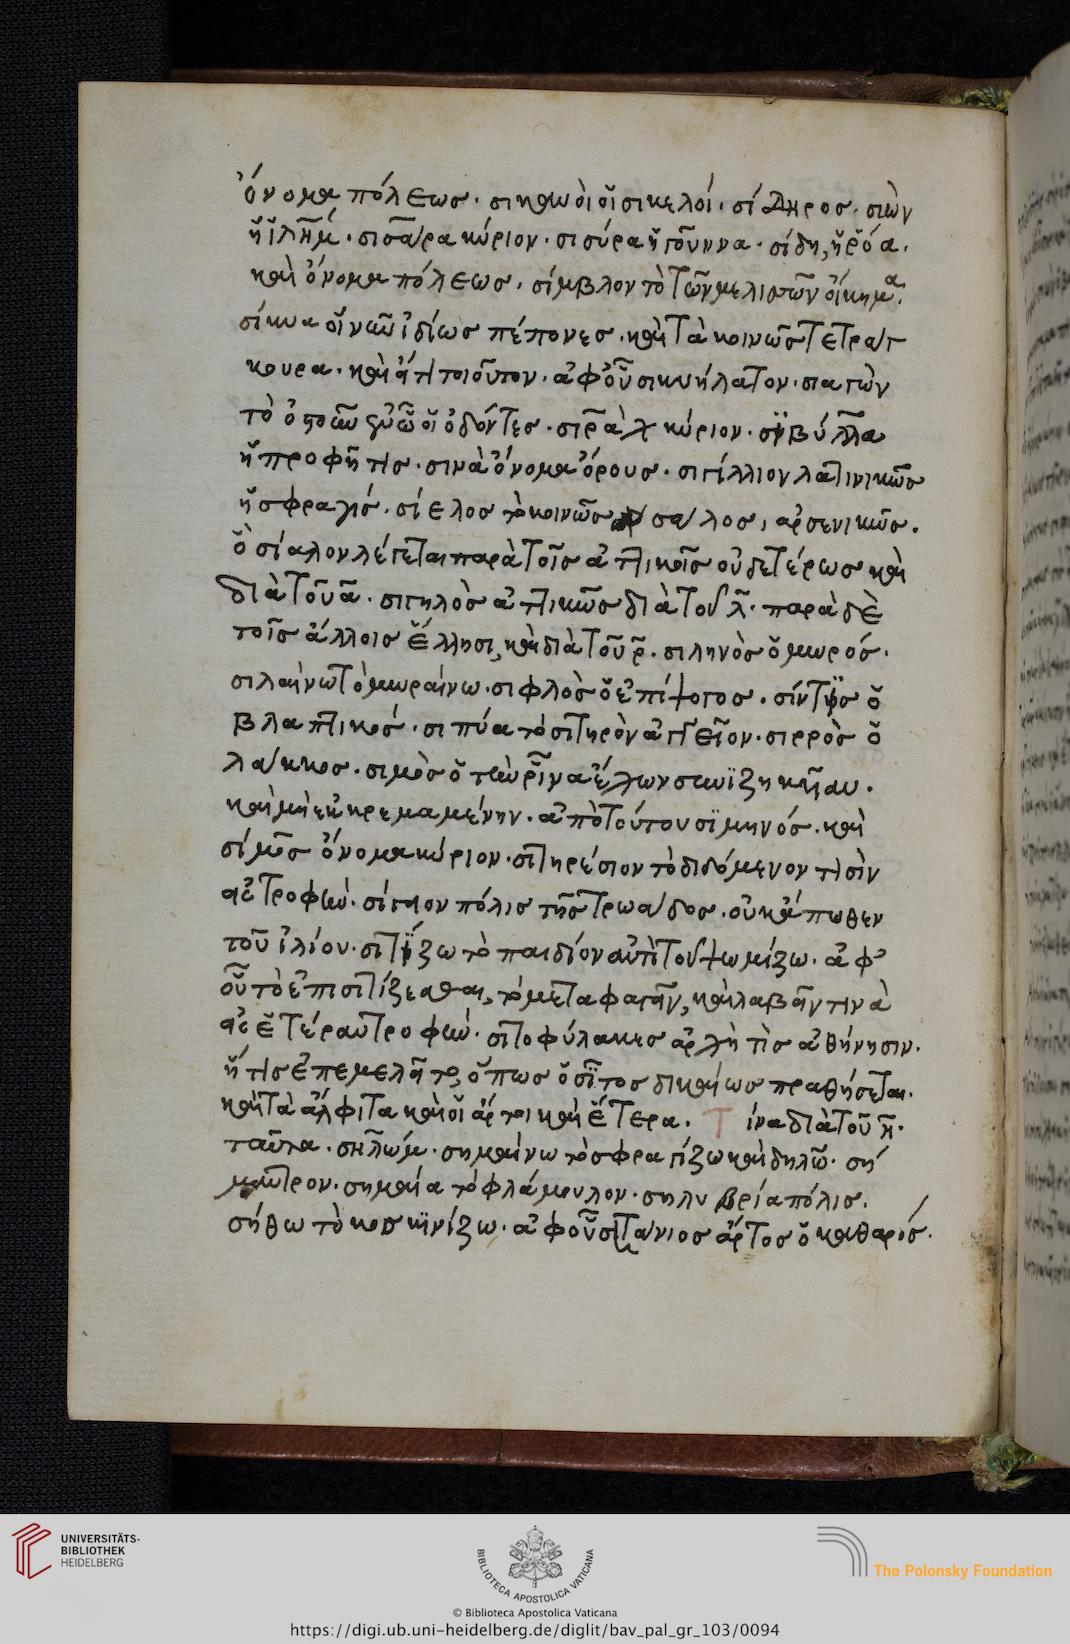 ὄνομα πόλεως. σικανοὶ οἱ σικελοί. σίδηρος. σιὼν
ἡ ἱλῆμ. σισάρα κύριον. σισύρα ἡ γοῦννα. σίδη, ἡ ῥόα.
καὶ ὄνομα πόλεως. σίμβλον τὸ τῶν μελισσῶν οἴκημα.
σίκυα οἷν ἰδίως πέπονες. καὶ τὰ κοινῶς τετράγ
κουρα. καὶ εἴ τι τοιοῦτον. ἀφ οὗ σικυήλατον. σιαγὼν
τὸ οἱ ὀδόντες. σιρὰχ κύριον. σίβύλλα
ἡ προφῆτις. σινὰ ὄνομα ὄρους. σιγίλλιον λατινικῶς
ἡ σφραγίς. σίελος τὸ κοινῶς σάλος, ἀρσενικῶς.
ὃ σίαλον λέγεται παρὰ τοῖς ἀττικοῖς οὐδετέρως καὶ
διὰ τοῦ α. σιγηλὸς ἀττικῶς διὰ τοῦ λ. παρὰ δὲ
τοῖς ἄλλοις ἕλλησι, καὶ διὰ τοῦ ρ. σιληνὸς ὁ μωρός.
σιλαίνω τὸ μωραίνω. σιφλὸς ὁ ἐπίψογος. σίντις ὁ
βλαπτικός. σιπύα τὸ σιτηρὸν ἀγγεῖον. σιρρὸς ὁ
λάκκος. σιμὸς ὁ τὴν ῥῖνα ἔχων
καὶ μὴ ἐκκρεμαμένην. ἀπὸ τούτου σϊμηνός. καὶ
σίμος ὄνομα κύριον. σιτηρέσιον τὸ διδόμενον τισὶν
εἰς τροφήν. σίγαιον πόλις τῆς τρωάδος. οὐκ ἄπωθεν
τοῦ ἰλίου. σιτίζω τὸ παιδίον ἀντὶ τοῦ ψωμίζω. ἀφ
οὗ τὸ ἐπισιτίζεσθαι, τὸ μεταφαγεῖν, καὶ λαβεῖν τινὰ
εἰς ἑτέραν τροφήν. σιτοφύλακες ἀρχὴ τὶς ἀθήνησιν.
ἥτις ἐπεμελεῖτο, ὅπως ὁ σῖτος δικαίως πραθήσεται.
καὶ τὰ ἄλφιτα καὶ οἱ ἄρτοι καὶ ἕτερα. τ ίνα διὰ τοῦ η.
ταῦτα. σηλώμ. σημαίνω τὸ σφραγίζω καὶ δηλῶ. σή
μαντρον. σημαία τὸ φλάμουλον. σηλυβρία πόλις.
σήθω τὸ κοσκϊνίζω. ἀφ οὗ σιτάνιος ἄρτος ὁ καθαρός.
UNIVERSITÄTS-
BIBLIOTHEK
HEIDELBERG
BIBLIOTECA APOSTOLICA VATICANA
The Polonsky Foundation
© Biblioteca Apostolica Vaticana
https://digi.ub.uni-heidelberg.de/diglit/bav_pal_gr_103/0094